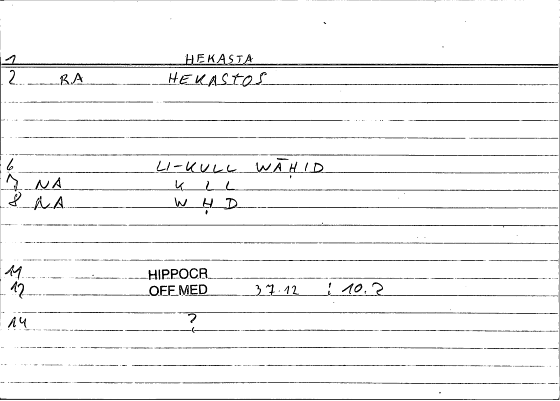 1 HEKASTA
2 RA HEKASTOS
6 LI-KULL WĀḤID
7 NA K L L
8 RA W Ḥ D
11 HIPPOCR
12 OFF MED 37.12 : 10.2
14 ?